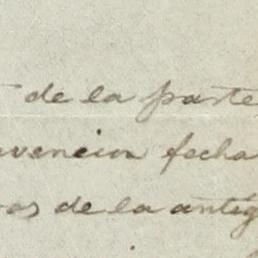 de la parte
vencion fecha
os de la antig